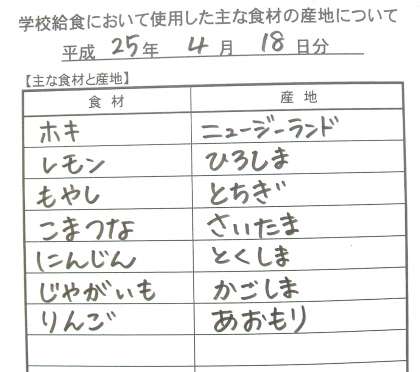 学校給食において使用した主な食材の産地について
平成 25 年 4 月 18 日分
【主な食材と産地】
食材 産地
ホキ ニュージーランド
レモン ひろしま
もやし とちぎ
こまつな さいたま
にんじん とくしま
じゃがいも かごしま
りんご あおもり